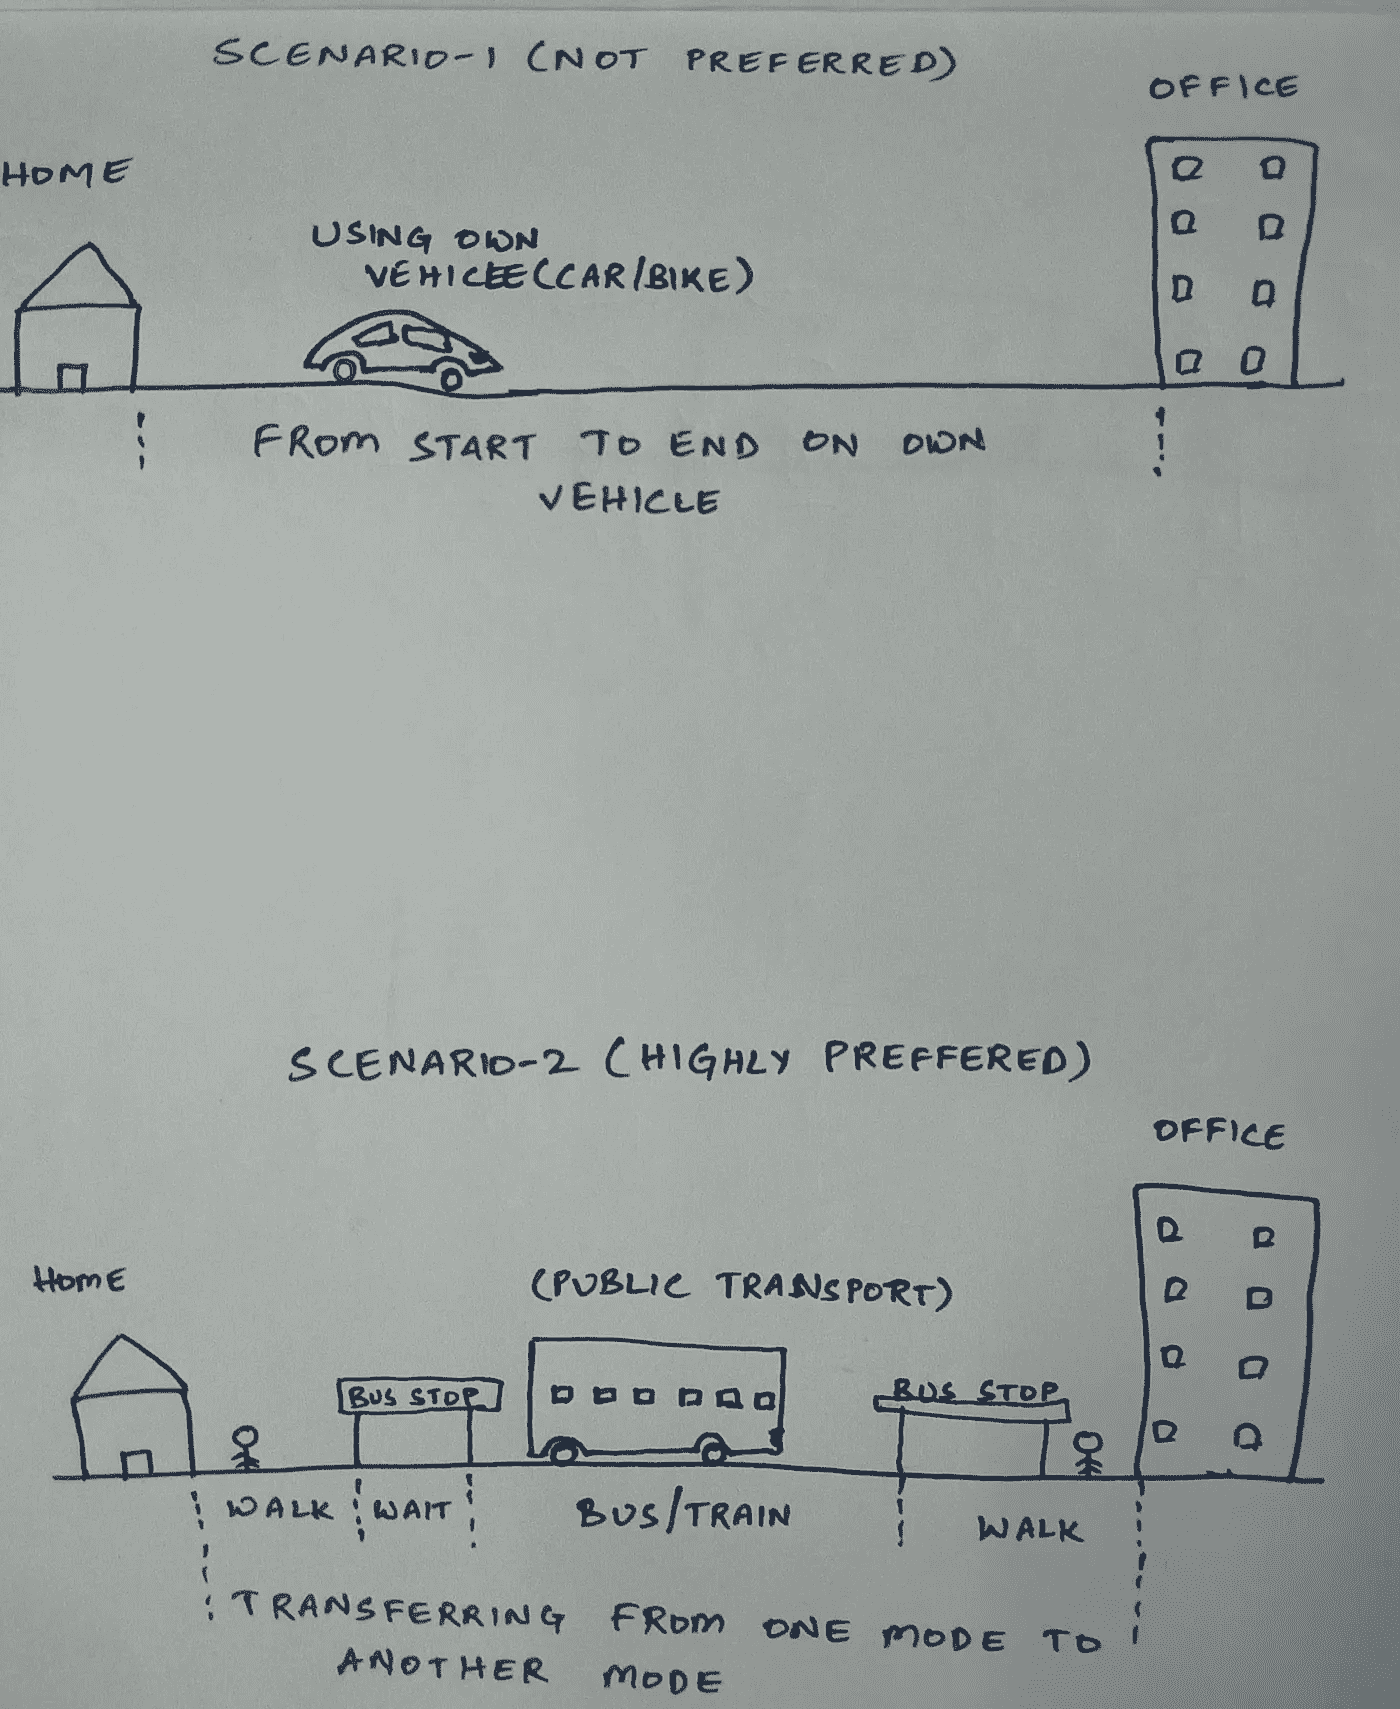 SCENARIO-1 (NOT PREFERRED)
OFFICE
HOME
USING OWN
VEHICLE (CAR/BIKE)
FROM START TO END ON OWN
VEHICLE
SCENARIO-2 (HIGHLY PREFFERED)
OFFICE
HOME
(PUBLIC TRANSPORT)
BUS STOP
BUS STOP
WALK
WAIT
BUS/TRAIN
WALK
TRANSFERRING FROM ONE MODE TO
ANOTHER MODE